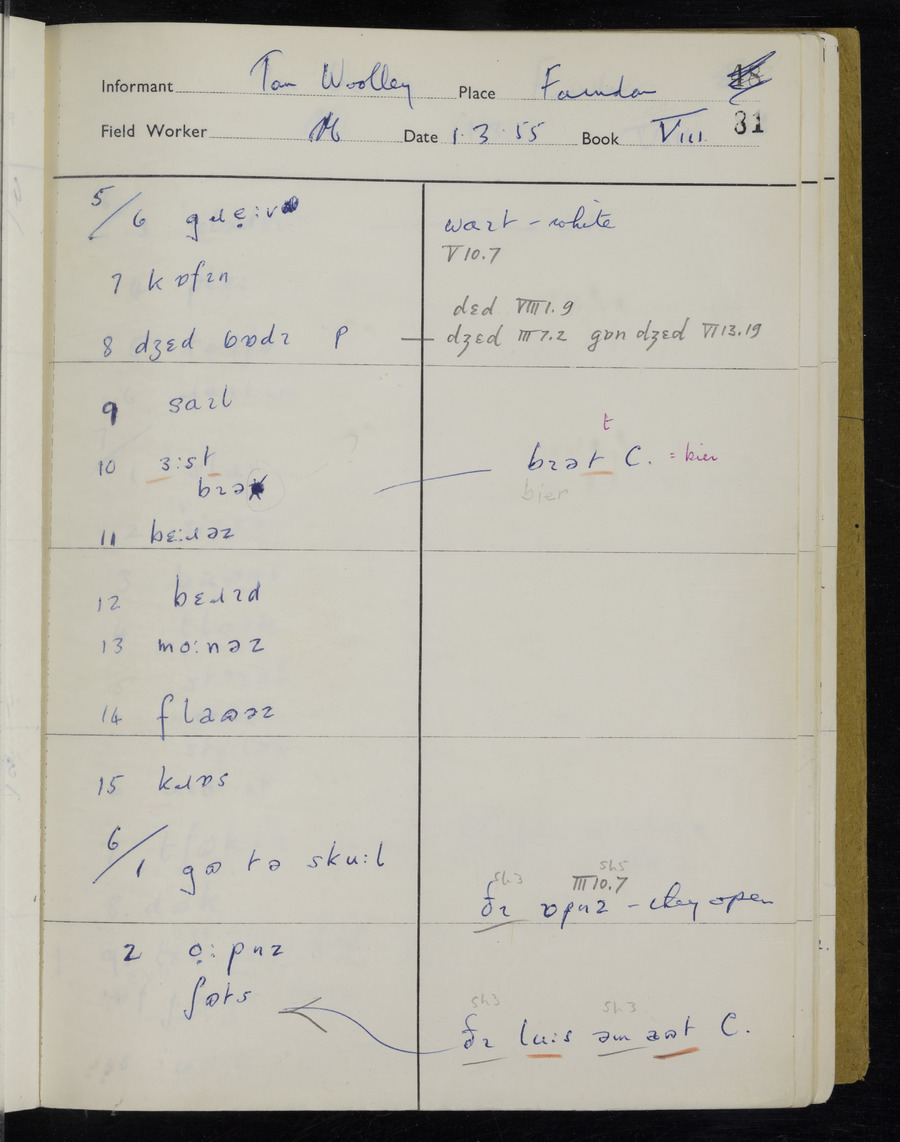 Informant Tom Woolley Place Farndon 48
Field Worker Date 1.3.55 Book VIII 31
5/6 gɹɛ̣:v
wart - white
V 10.7
7 kɒfɪn
dɛd VIII 1.9
8 dʒɛd bɒdɪ P
dʒɛd III 7.2 gɒn dʒɛd VI 13.19
9 saɪl
t
10 ɜ:st
brət C. = bier
bɪə
bier
11 bɛ:ɹəz
12 bɛɹɪd
13 mo:nəz
14 flaʊəz
15 kɹɒs
6/1 gʊ tə sku:l
Sh3 Sh5
III 10.7
ðɪ ɒpnz - they open
2 ọ:pnz
ʃʊts
Sh3 Sh3
ðɪ lu:s əm aʊt C.